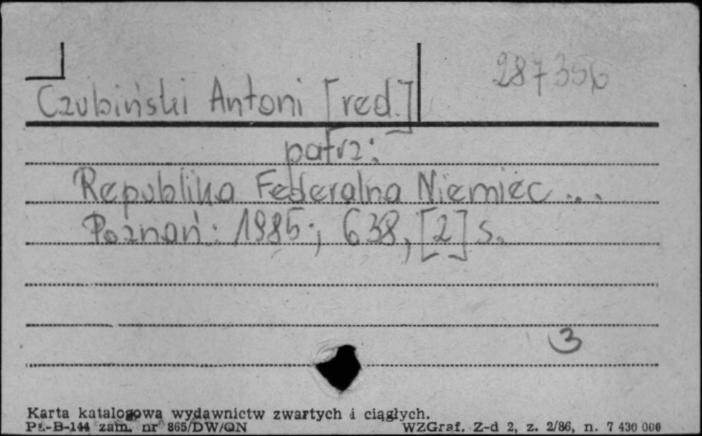 287356
Czubiński Antoni [red.]
patrz:
Republika Federalna Niemiec...
Poznań: 1985; 638, [2] s.
3
Karta katalogowa wydawnictw zwartych i ciągłych.
Pu-B-144 zam. nr 865/DW/ON WZGraf. Z-d 2, z. 2/86, n. 7 430 000